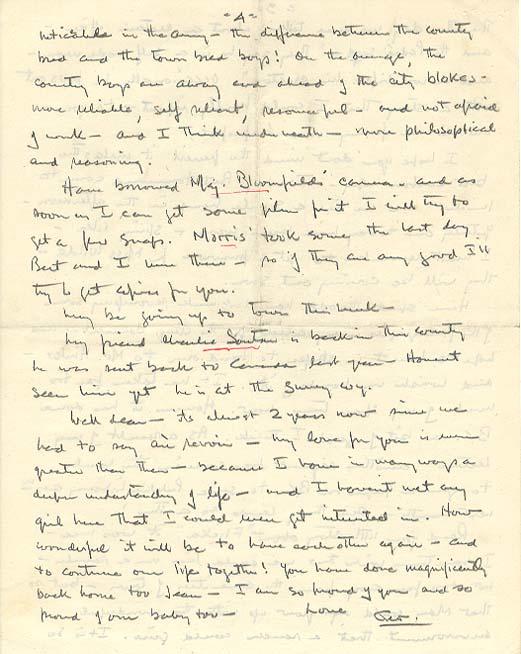 -4-
noticeable in the army - the difference between the country
bred and the town bred boys! On the average, the
country boys are away and ahead of the city blokes -
more reliable, self reliant, resourceful - and not afraid
of work - and I think underneath - more philosophical
and reasoning.
Have borrowed Maj. Bloomfields' camera - and as
soon as I can get some film for it I will try to
get a few snaps. Morris' took some the last day
Bert and I were there - so if they are any good I'll
try to get copies for you.
May be going up to town this week -
My friend Charlie is back in this country
he was sent back to Canada last year. Havent
seen him yet - he is at the
Well dear - its almost 2 years now since we
had to say au revoir - my love for you is even
greater than then - because I have in many ways a
deeper understanding of life - and I havent met any
girl here that I could even get interested in. How
wonderful it will be to have each other again - and
to continue our life together! You have done magnificently
back home too Jean - I am so proud of you and so
proud of our baby too - Love